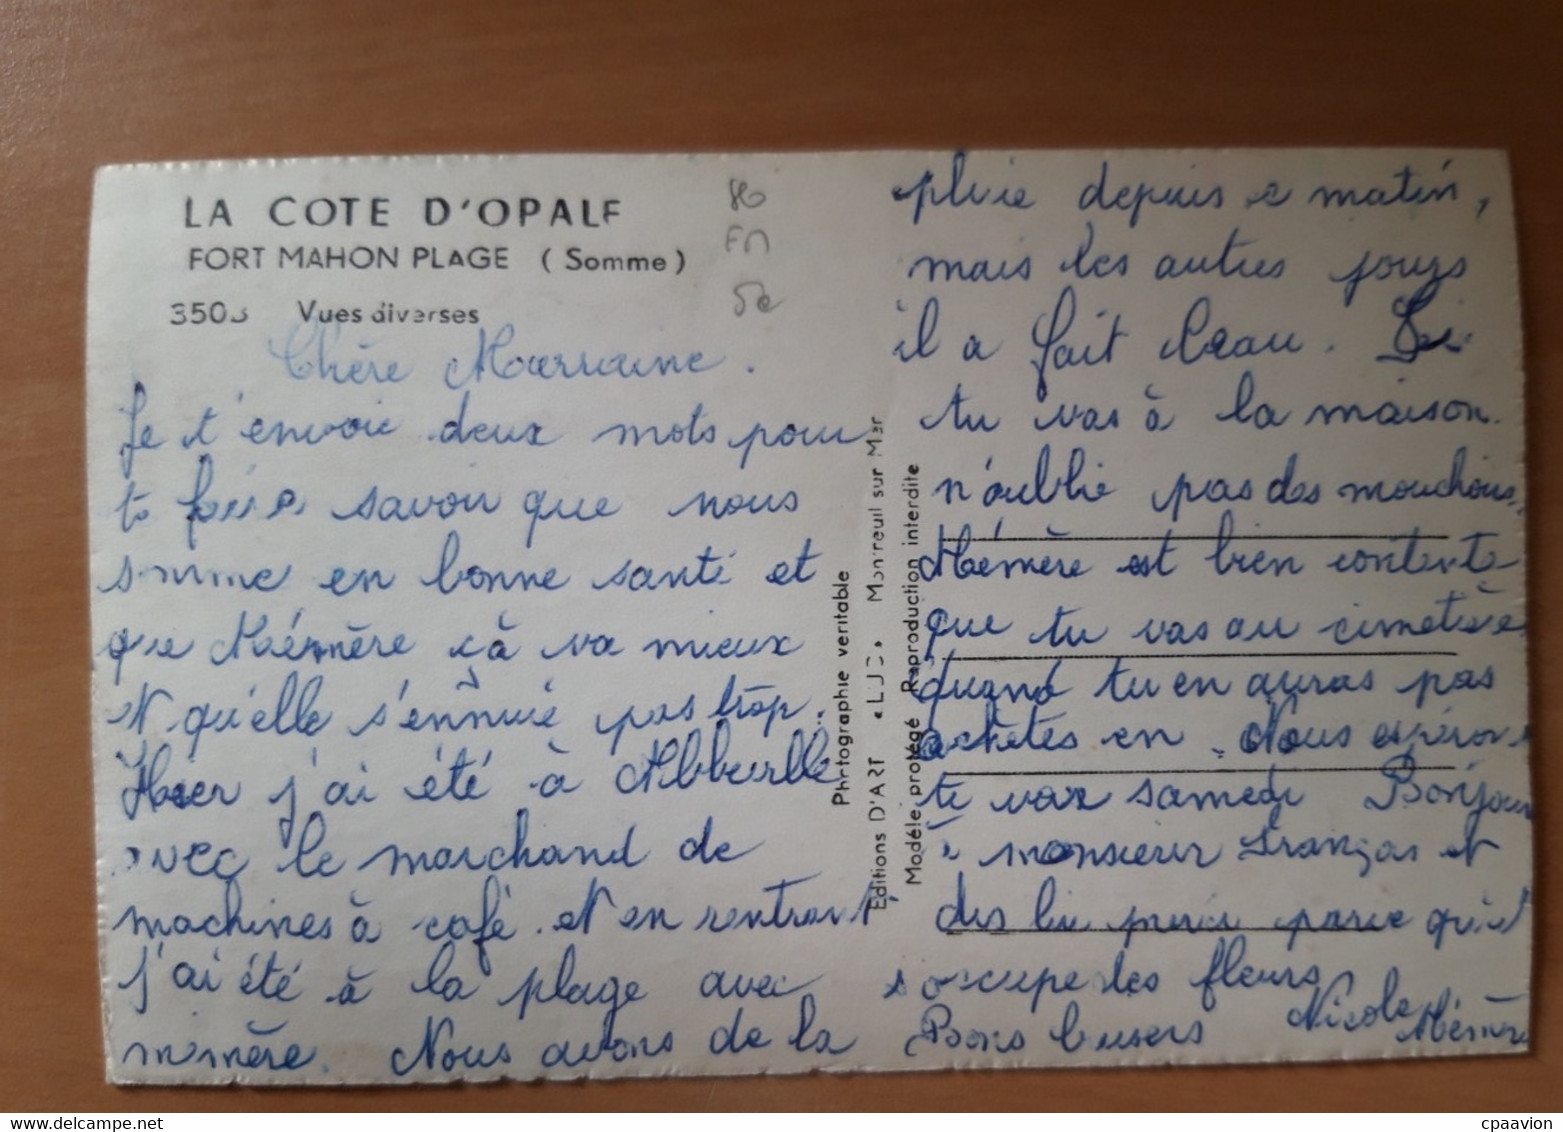 LA COTE D'OPALE
FORT MAHON PLAGE (Somme)
3503 Vues diverses
80
FM
5e
Chère Marraine.
Je t'envoie deux mots pour
te faire savoir que nous
somme en bonne santé et
que Mémère çà va mieux
et qu'elle s'ennuié pas trop.
Hier j'ai été à Abbeville
avec le marchand de
machines à café. et en rentrant
j'ai été à la plage avec
mémère. Nous avons de la
pluie depuis ce matin,
mais les autres jours
il a fait beau. Si
tu vas à la maison.
n'oublie pas des mouchoirs.
Mémère est bien contente
que tu vas au cimetière
quand tu en auras pas
achètes en. Nous espérons
te voir samedi Bonjour
à monsieur François et
dis lui merci parce qu'il
s'occupe des fleurs
Bons baisers Nicole Mémère
Photographie veritable
Editions D'ART Montreuil sur Mer
Modèle protégé Reproduction interdite
cpaavion